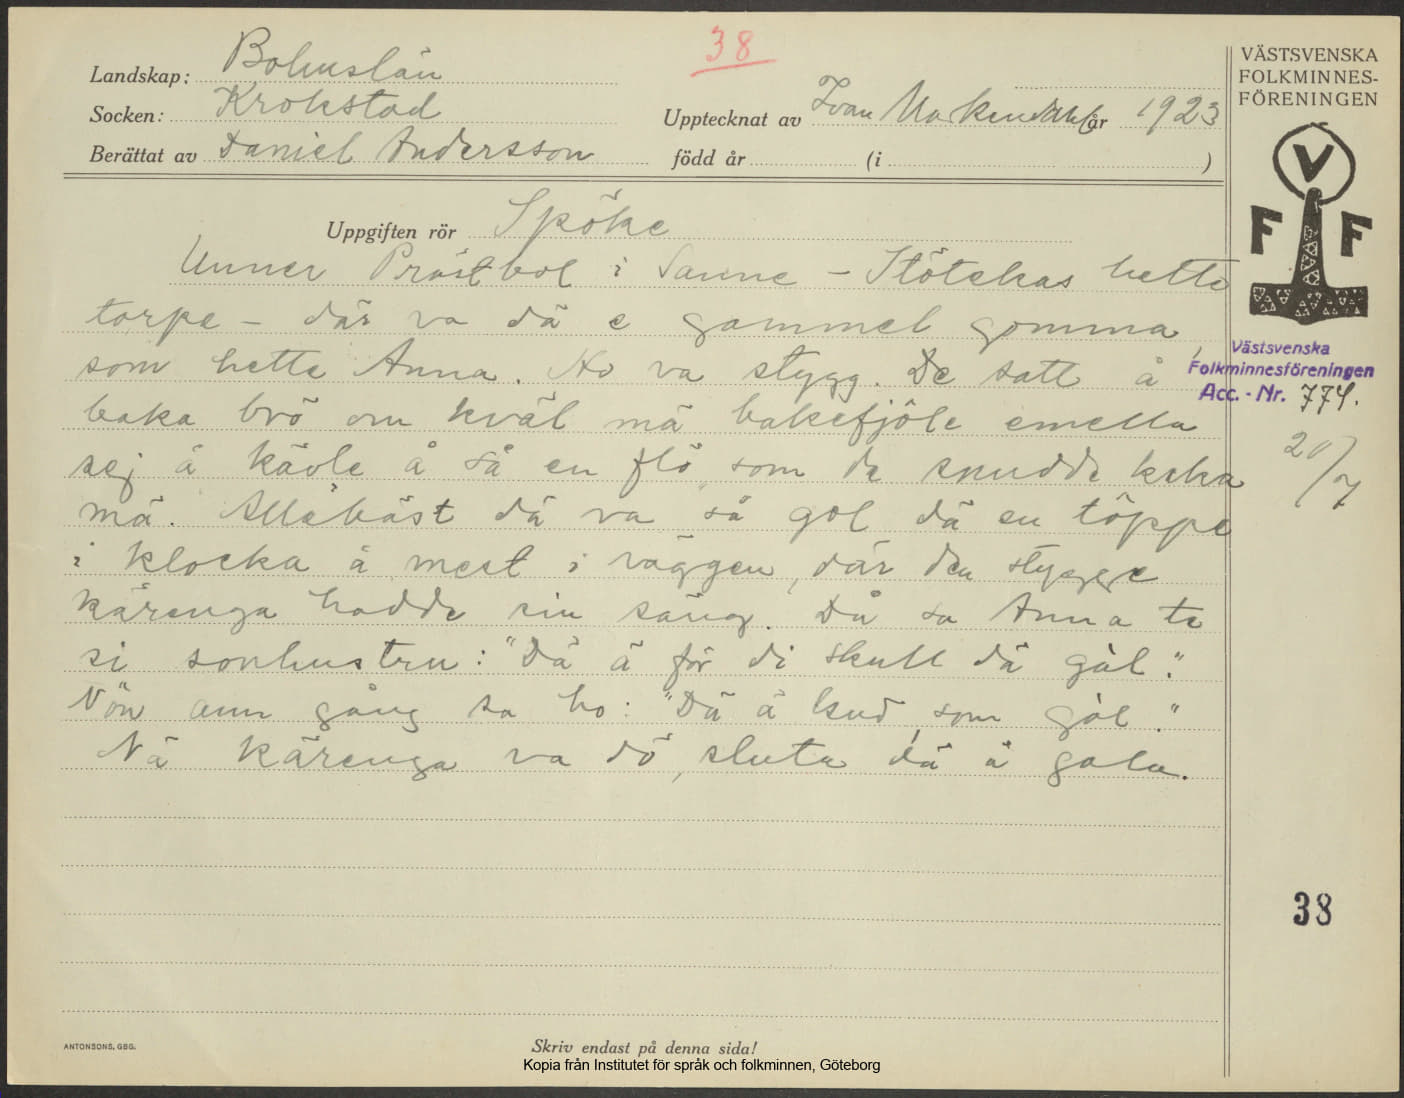 38
Landskap: Bohuslän
Socken: Krokstad
Upptecknat av Ivan år 1923
Berättat av Daniel Andersson född år (i )
Uppgiften rör Spöke
Unner Präståbol i Sanne - Stötekas hette
torpe - där va dä e gammel gomma,
som hette Anna. Ho va stygg. De satt å
baka brö om kväl mä bakefjöle emella
sej å kävle å så en flö som de snudde kaka
mä. Allebäst dä va så gol dä en töppe
i klocka å mest i väggen, där den stygge
kärenga hadde sin säng. Då sa Anna te
si sonhustru: "Dä ä för di skull dä gäl."
Nön ann gång sa ho: "Dä ä Gud som gäl."
Nä kärenga va dö, sluta dä å gala.
VÄSTSVENSKA
FOLKMINNES-
FÖRENINGEN
V
F F
Västsvenska
Folkminnesföreningen
Acc.-Nr. 774.
20/7
38
ANTONSONS, GBG.
Skriv endast på denna sida!
Kopia från Institutet för språk och folkminnen, Göteborg